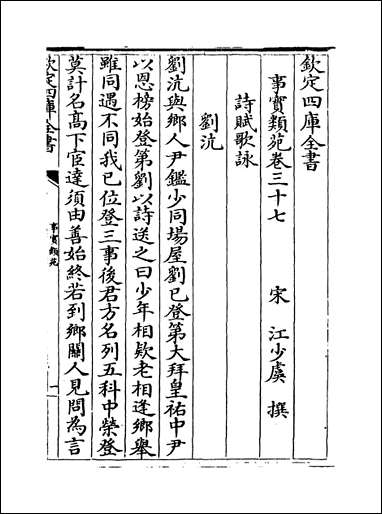 欽定四庫全書
事實類苑卷三十七
宋 江少虞 撰
詩賦歌詠
劉沆
劉沆與鄉人尹鑑少同場屋劉已登第大拜皇祐中尹
以恩榜始登第劉以詩送之曰少年相欵老相逢鄉舉
雖同遇不同我已位登三事後君方名列五科中榮登
莫計名髙下宦達須由善始終若到鄉關人見問為言
欽定四庫全書
事實類苑
一